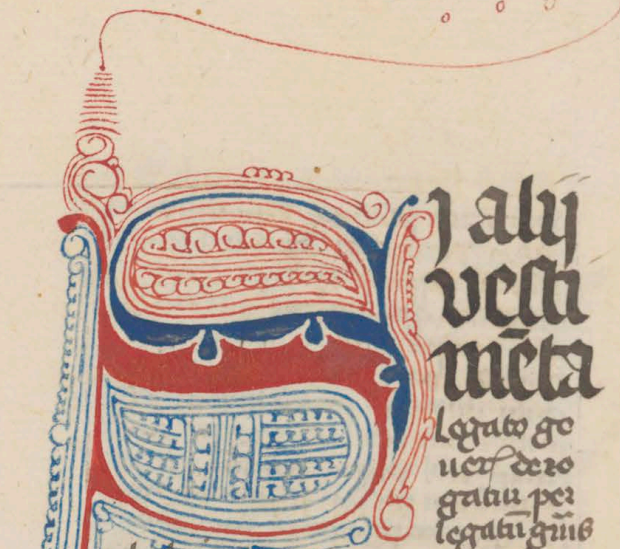 I alij
vesti
mēta
legato ge
ner̄ dero
gatur per
legatū gn̄is